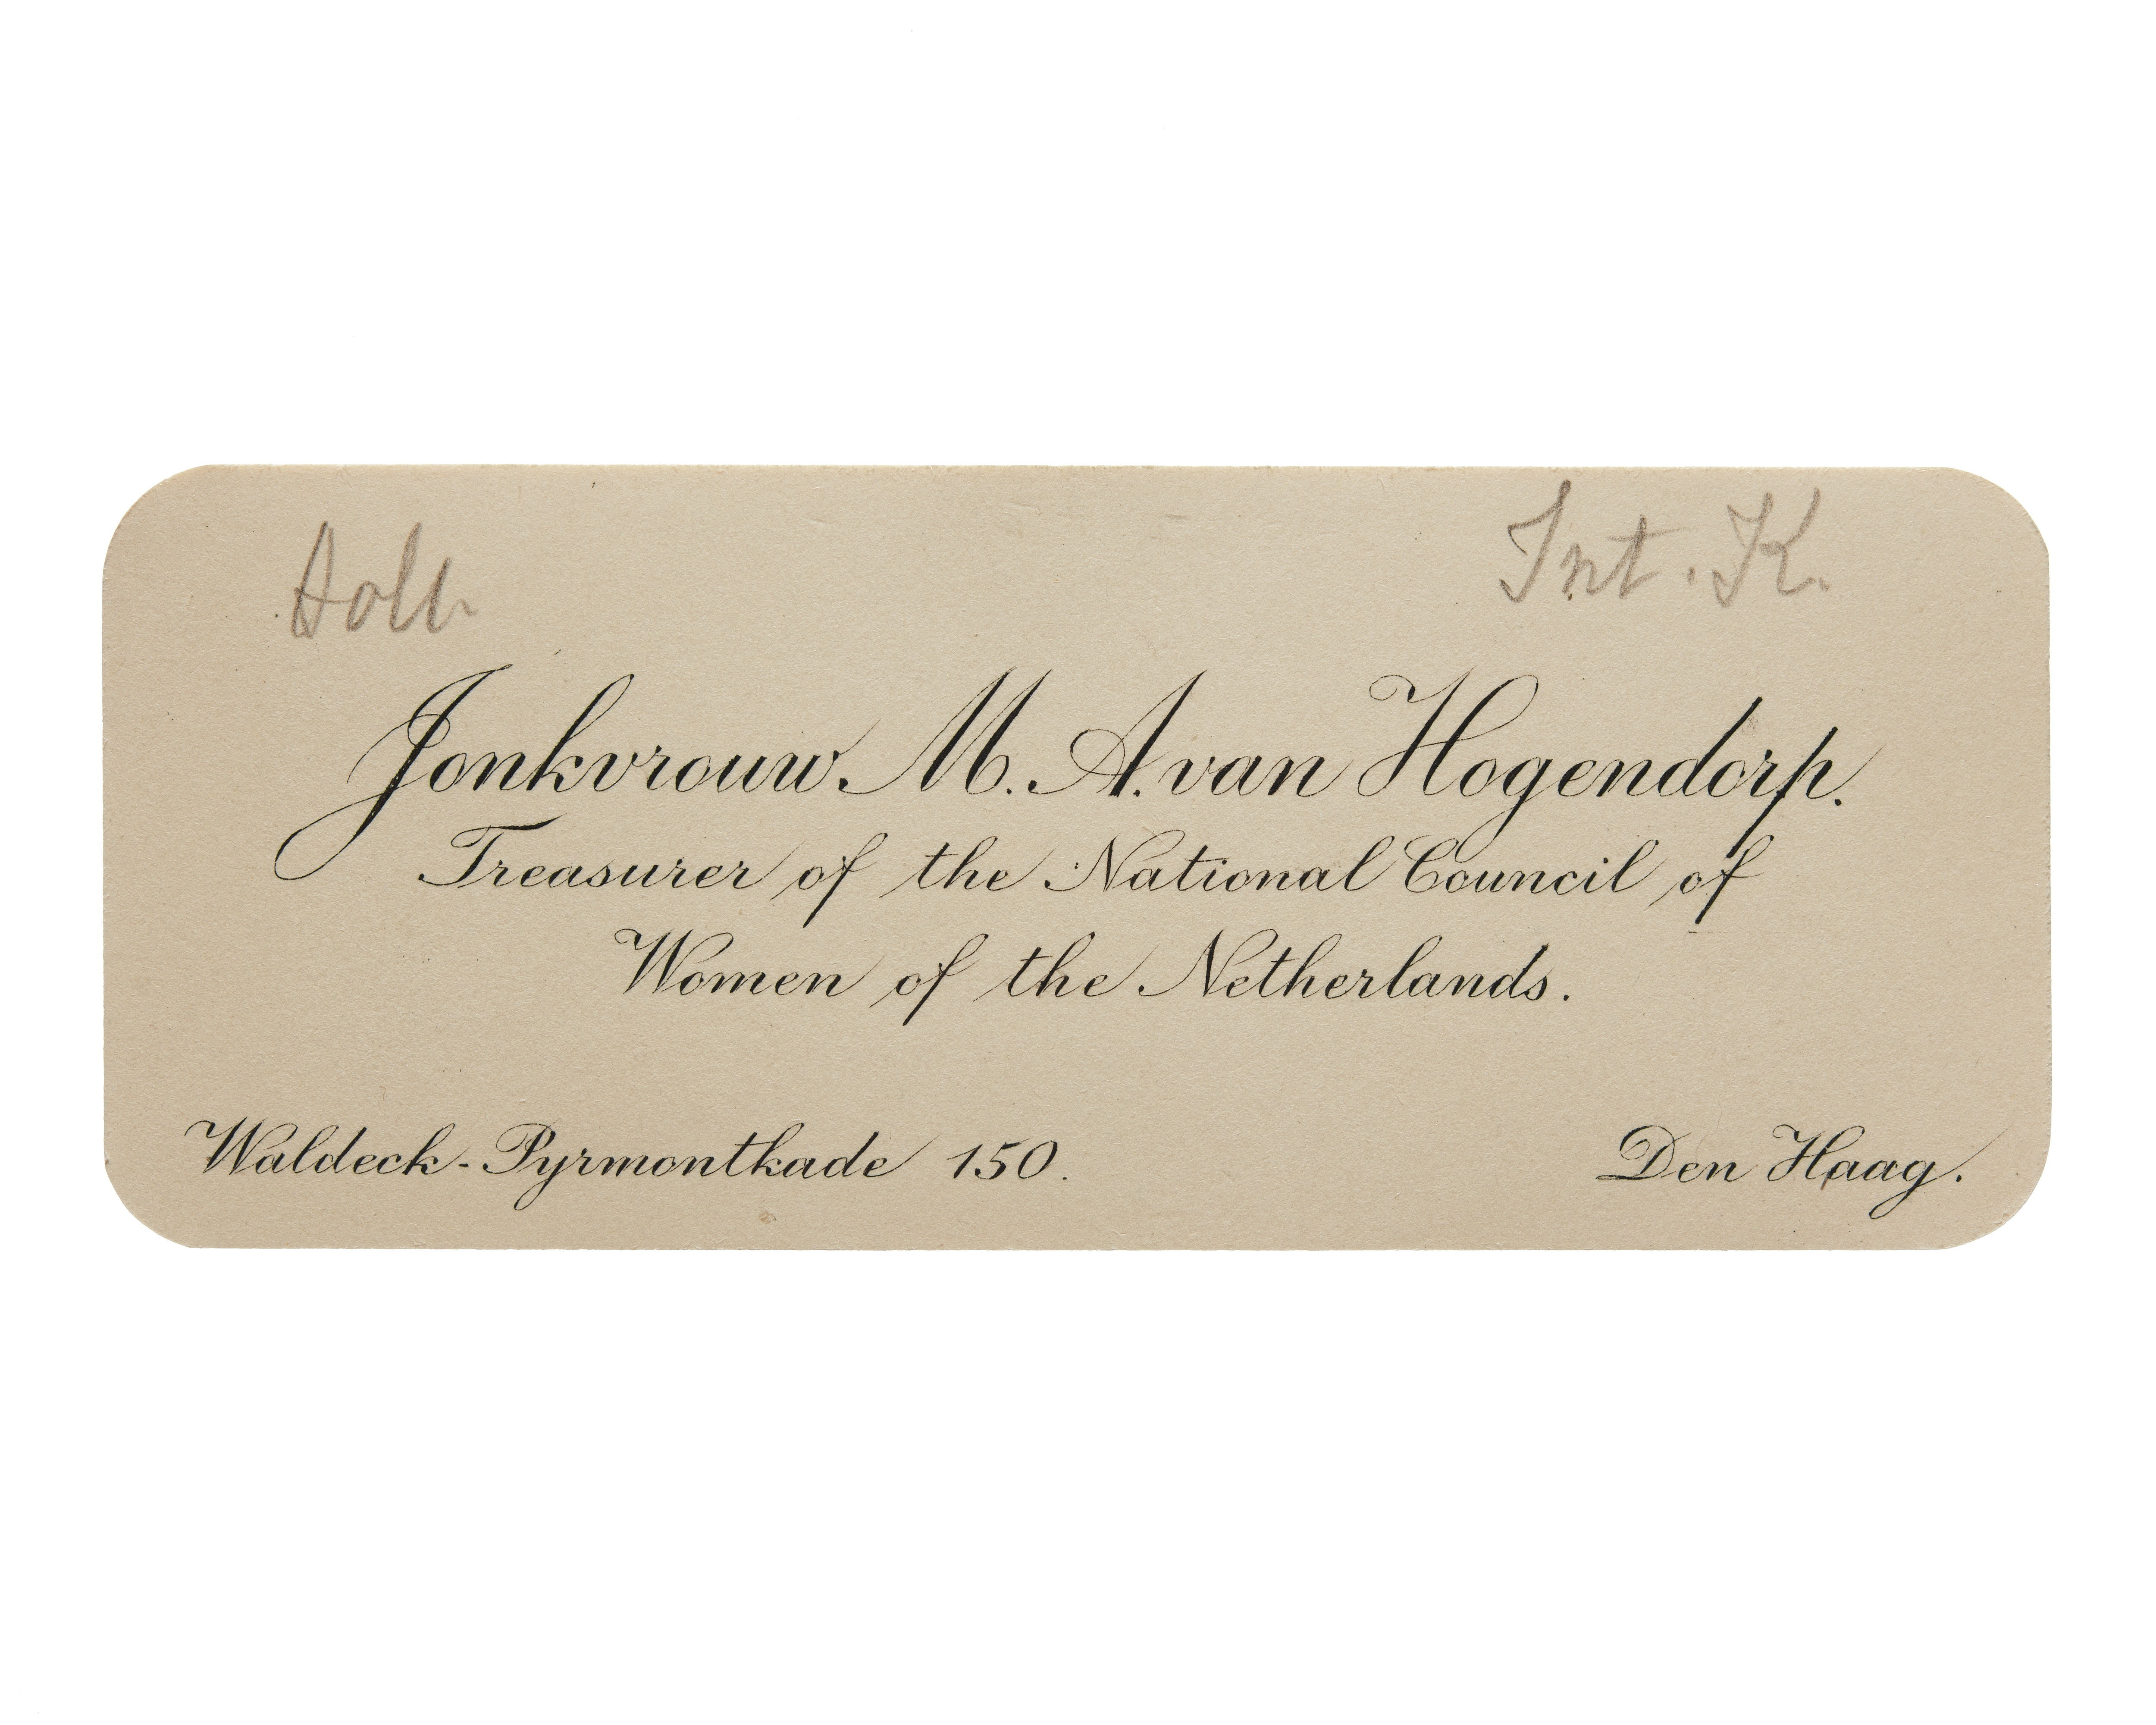 Holl. Int. K.
Jonkvrouw M. A. van Hogendorp.
Treasurer of the National Council of
Women of the Netherlands.
Waldeck-Pyrmontkade 150. Den Haag.